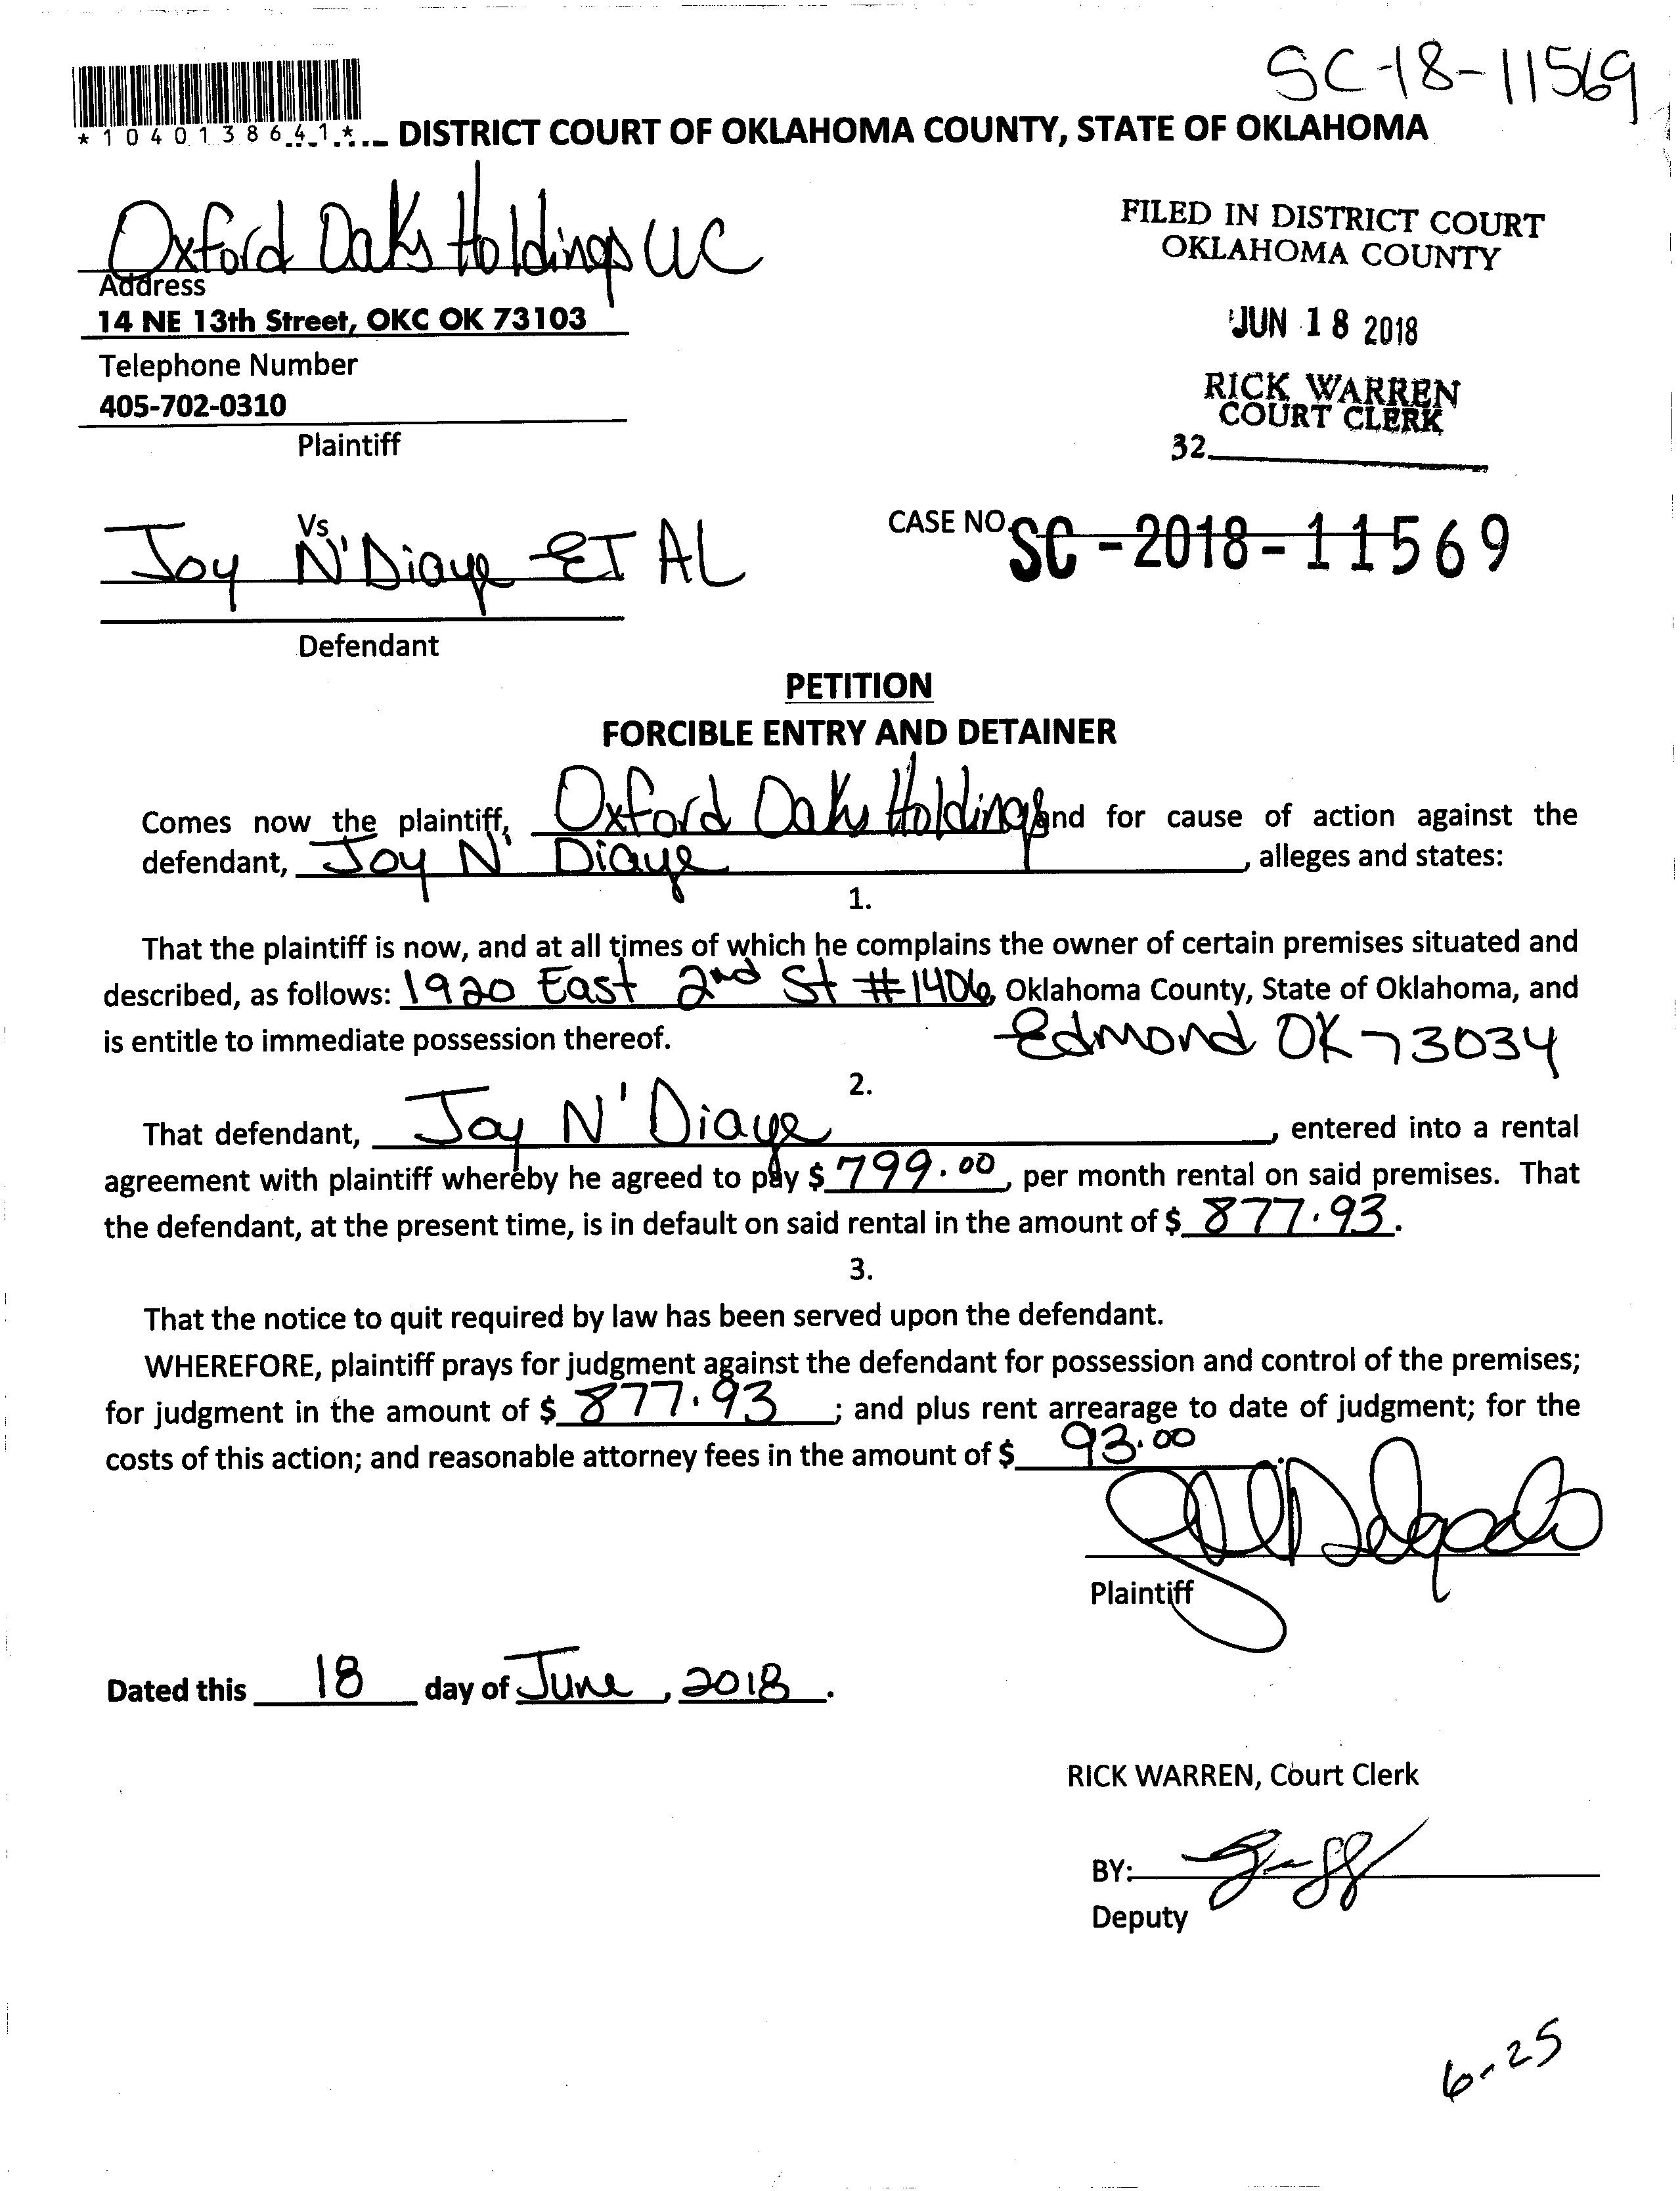 SC-18-11569
*1040138641*
DISTRICT COURT OF OKLAHOMA COUNTY, STATE OF OKLAHOMA
Oxford Oaks Holdings LLC
Address
14 NE 13th Street, OKC OK 73103
Telephone Number
405-702-0310
Plaintiff
FILED IN DISTRICT COURT
OKLAHOMA COUNTY
JUN 18 2018
RICK WARREN
COURT CLERK
32
Vs
Joy N'Diaye ET AL
Defendant
CASE NO. SC-2018-11569
PETITION
FORCIBLE ENTRY AND DETAINER
Comes now the plaintiff, Oxford Oaks Holdings and for cause of action against the
defendant, Joy N'Diaye, alleges and states:
1.
That the plaintiff is now, and at all times of which he complains the owner of certain premises situated and
described, as follows: 1920 East 2nd St #1406, Oklahoma County, State of Oklahoma, and
is entitle to immediate possession thereof. Edmond OK 73034
2.
That defendant, Joy N'Diaye, entered into a rental
agreement with plaintiff whereby he agreed to pay $ 799.00, per month rental on said premises. That
the defendant, at the present time, is in default on said rental in the amount of $ 877.93.
3.
That the notice to quit required by law has been served upon the defendant.
WHEREFORE, plaintiff prays for judgment against the defendant for possession and control of the premises;
for judgment in the amount of $ 877.93; and plus rent arrearage to date of judgment; for the
costs of this action; and reasonable attorney fees in the amount of $ 93.00.
Delgado
Plaintiff
Dated this 18 day of June, 2018.
RICK WARREN, Court Clerk
BY:
Deputy
6-25